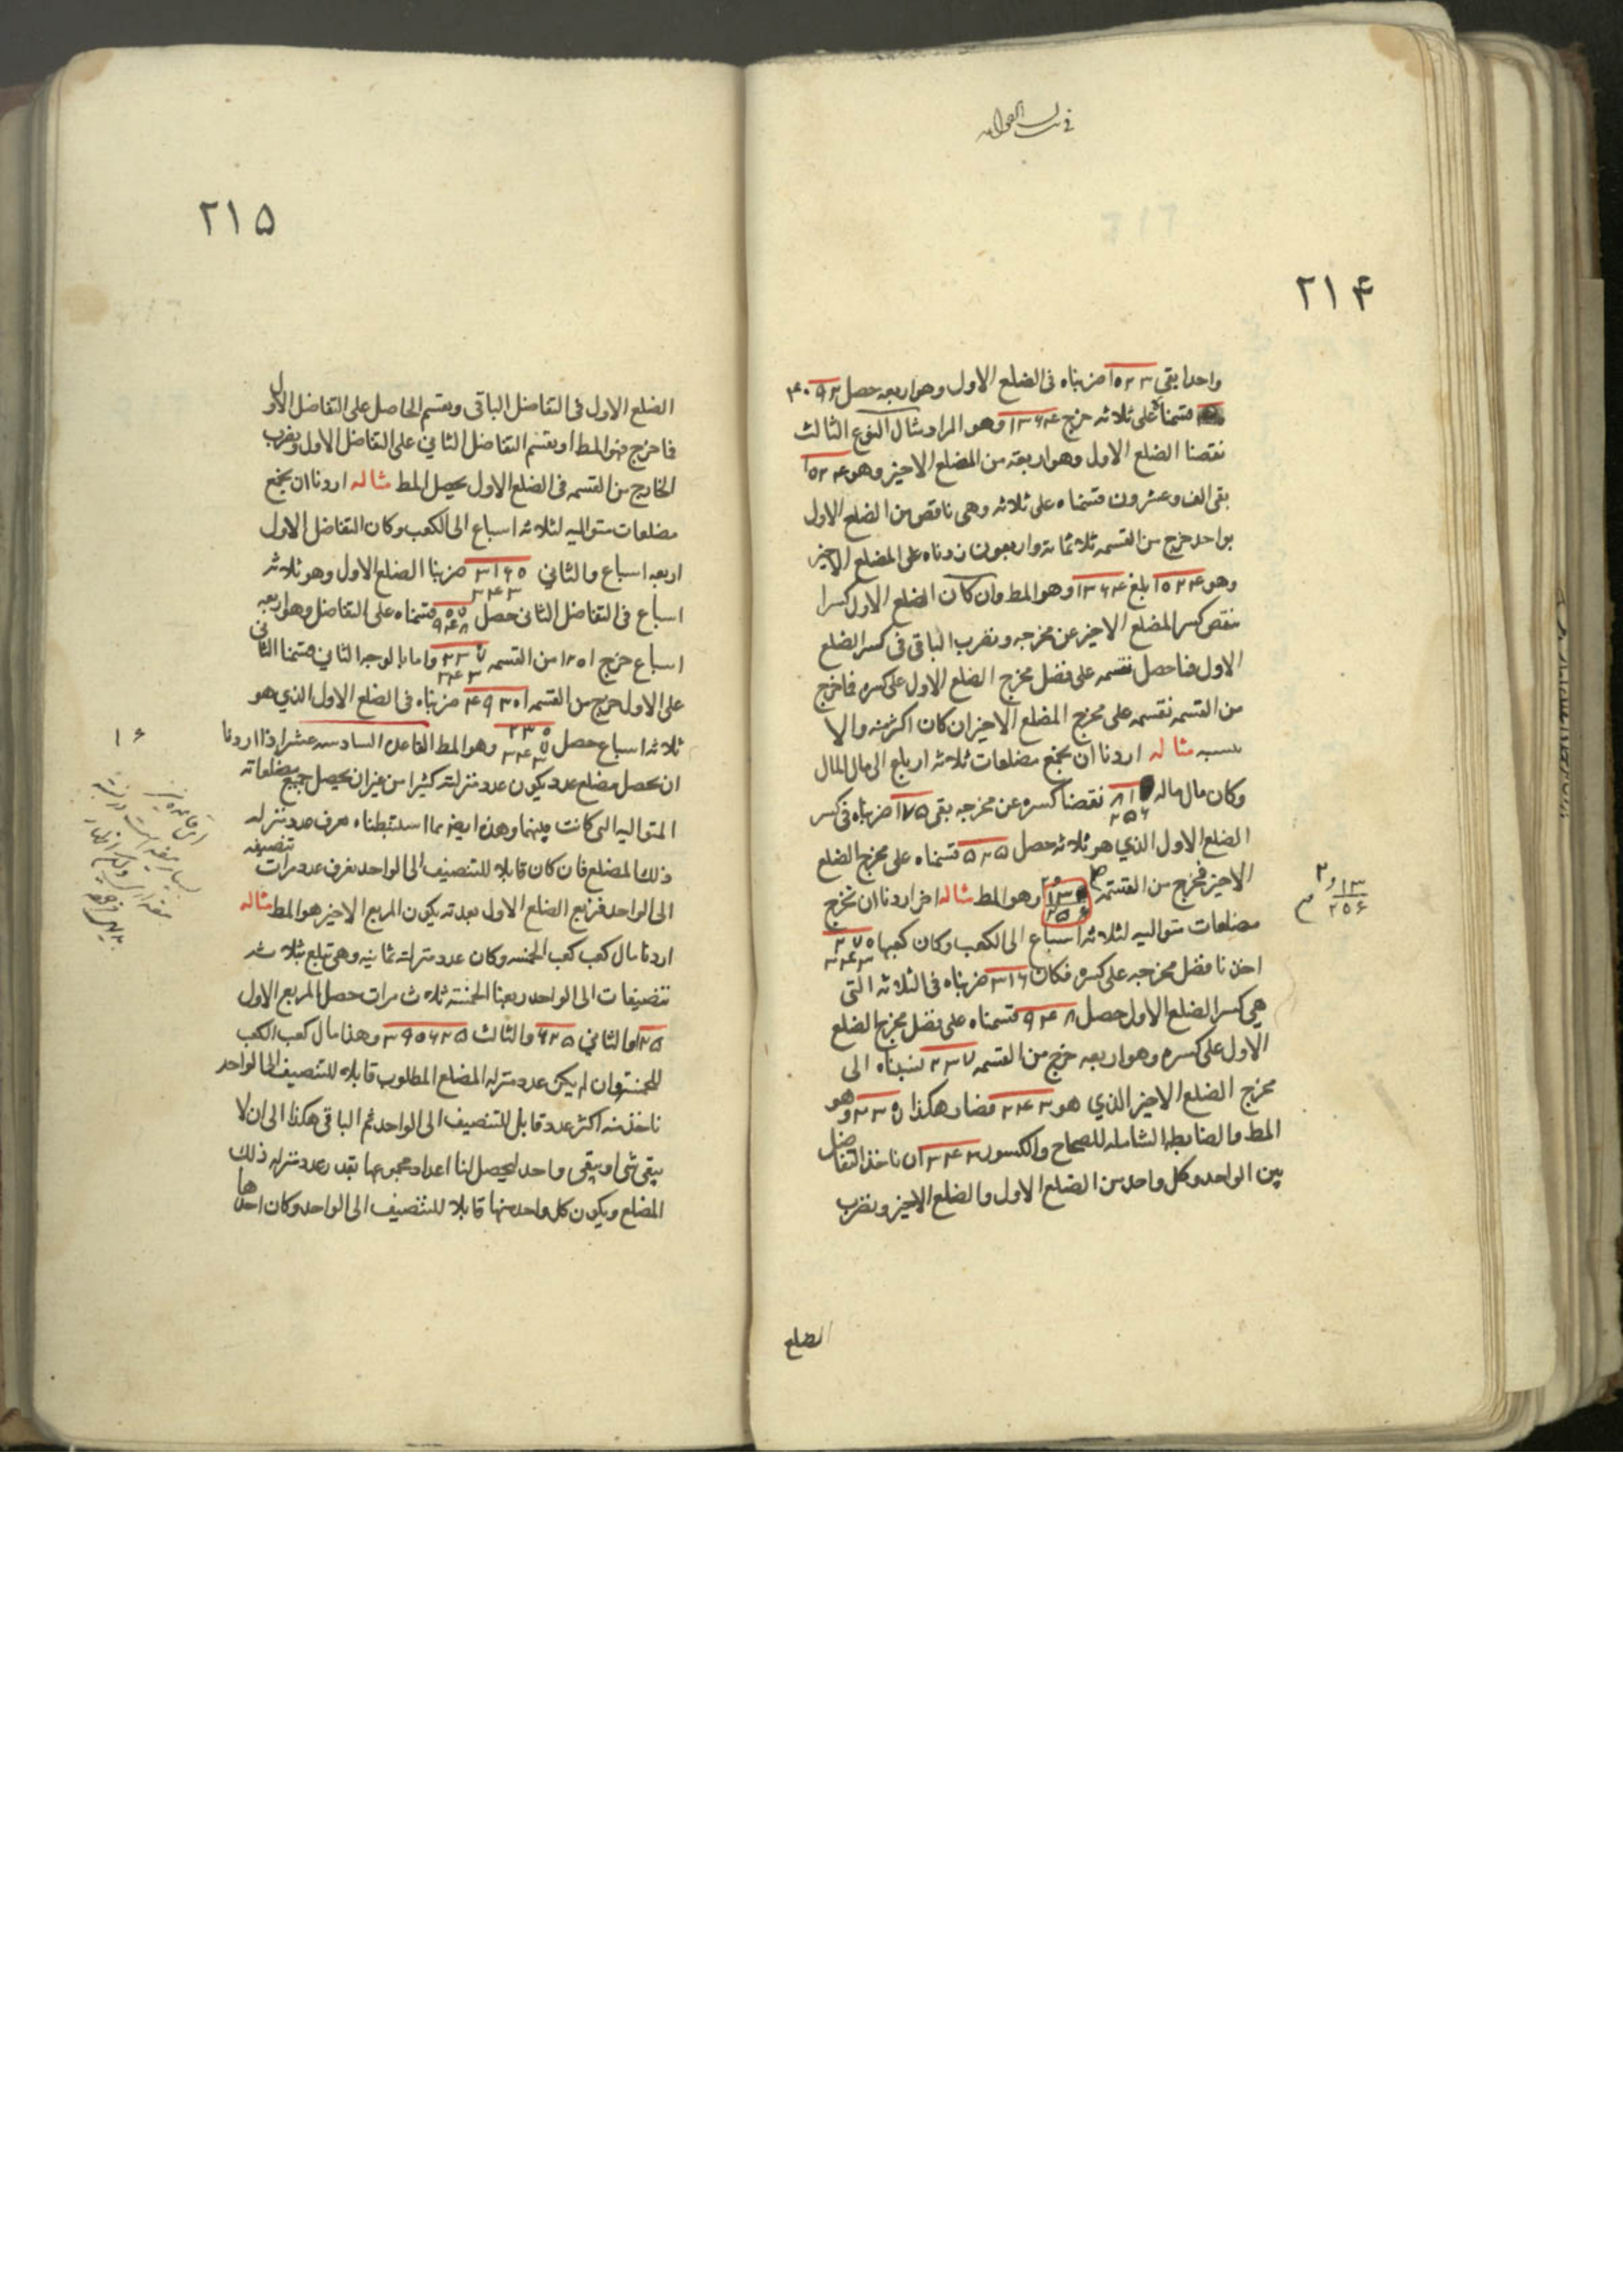 ٢١۴
واحدا بقى ١٠٢٣ ضربناه فى الضلع الاول وهو اربعه حصل ۴٠٩٢
قسمناه على ثلاثه خرج ١٣۶۴ وهو المراد مثال النوع الثالث
نقصنا الضلع الاول وهو اربعة من المضلع الاخير وهو ١٠٢۴
بقى الف وعشرون قسمناه على ثلاثه وهى ناقص من الضلع الاول
بواحد خرج من القسمه ثلاثمائه واربعون زدناه على المضلع الاخير
وهو ١٠٢۴ بلغ ١٣۶۴ وهو المط وان كان الضلع الاول كسرا
ننقص كسر المضلع الاخير عن مخرجه ونضرب الباقى فى كسر الضلع
الاول فما حصل نقسمه على فضل مخرج الضلع الاول على كسره فما خرج
من القسمه نقسمه على مخرج المضلع الاخير ان كان اكثر منه والا
ننسبه مثاله اردنا ان نجمع مضلعات ثلاثه ارباع الى مال المال
وكان مال ماله ٨١ ٢٥۶ نقصنا كسره عن مخرجه بقى ١٧٥ ضربناه فى كسر
الضلع الاول الذي هو ثلاثه حصل ٥٢٥ قسمناه على مخرج الضلع
الاخير فخرج من القسمه ٢ ١٣ ٢٥۶ وهو المط مثاله اخر اردنا ان نخرج
مضلعات متواليه لثلاثه اسباع الى الكعب وكان كعبها ٢٧ ٣۴٣
اخذنا فضل مخرجه على كسره فكان ٣١۶ ضربناه فى الثلاثه التى
هى كسر الضلع الاول حصل ٩۴٨ قسمناه على فضل مخرج الضلع
الاول على كسره وهو اربعه خرج من القسمه ٢٣٧ نسبناه الى
مخرج الضلع الاخير الذي هو ٣۴٣ فصار هكذا وهو
المط والضابطه الشامله للصحاح والكسور ان ناخذ التفاضل
بين الواحد وكل واحد من الضلع الاول والضلع الاخير ونضرب
الضلع
١٣ ٢٥۶ و٢
٢١٥
الضلع الاول فى التفاضل الباقى ونقسم الحاصل على التفاضل الاول
فما خرج فهو المط او نقسم التفاضل الثاني على التفاضل الاول ونضرب
الخارج من القسمه فى الضلع الاول يحصل المط مثاله اردنا ان نجمع
مضلعات متواليه لثلاثه اسباع الى الكعب وكان التفاضل الاول
اربعه اسباع والثاني ٣١۶ ٣۴٣ ضربنا الضلع الاول وهو ثلاثه
اسباع فى التفاضل الثانى حصل قسمناه على التفاضل وهو اربعه
اسباع خرج من القسمه ٢٣٧ ٣۴٣ واما بالوجه الثاني قسمنا الثانى
على الاول خرج من القسمه ضربناه فى الضلع الاول الذي هو
ثلاثه اسباع حصل وهو المط القاعدة السادسه عشر اذا اردنا
ان نحصل مضلع عدد يكون عدد منزلته كثيرا من غير ان يحصل جميع مضلعاته
المتواليه التى كانت بينهما وهذه ايضا مما استنبطناه نعرف عدد منزله
ذلك المضلع فان كان قابلا للتنصيف الى الواحد نعرف عدد مرات تنصيفه
الى الواحد فنربع الضلع الاول بعدته يكون المربع الاخير هو المط مثاله
اردنا مال كعب كعب الخمسه وكان عدد منزلته ثمانيه وهى تبلغ بثلاث
تنصيفات الى الواحد ربعنا الخمسة ثلاث مرات حصل المربع الاول
٢٥ والثاني ۶٢٥ والثالث ٣٩٠۶٢٥ وهذا مال كعب الكعب
للخمسة وان لم يكن عدد منزله المضلع المطلوب قابلا للتنصيف الى الواحد
ناخذ منه اكثر عدد قابل للتنصيف الى الواحد ثم الباقى هكذا الى ان لا
يبقى شى او يبقى واحد ليحصل لنا اعداد مجموعها بقدر عدد منزله ذلك
المضلع ويكون كل واحد منها قابلا للتنصيف الى الواحد وكان احدها
١۶